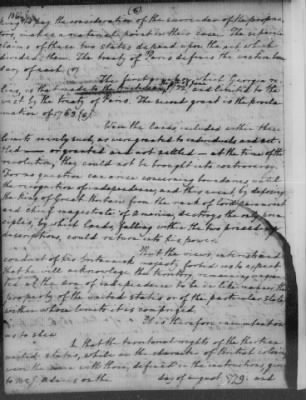 (6)
may the consideration of the surrender of the propri
tors, makes a material point in their case. The respective
claims of these two states depend upon the act which
divided them. The treaty of Paris defines the western boun
dary of each (r)
The first grant, on which Georgia re
lies, is that made to the trustees in 1732, and limited to the
west by the treaty of Paris. The second grant is the procla
mation of 1763 (s).
Were the lands, included within these
limits merely such, as were granted to individuals and set
tled — or granted and not settled — at the time of the
revolution, they could not be brought into controversy.
For no question can arise concerning boundary until
the recognition of independence; and this event, by destroying
the King of Great Britain from the rank of lord paramount
and chief magistrate of america, destroys the only prin
ciples, by which lands, falling within the two preceding
descriptions, could return into his power.
But the views, interests and
conduct of his britannick majesty forbid us to expect
that he will acknowledge the territory, remaining ungran
ted at the æra of independence to be in like manner the
property of the united states or of the particular state
within whose limits it is comprized.
It is therefore incumbent on
us to shew
1. that the territorial rights of the thirteen
united states, while in the character of British colonies,
were the same with those, defined in the instructions, given
to Mr J. Adams on the day of august 1779: and